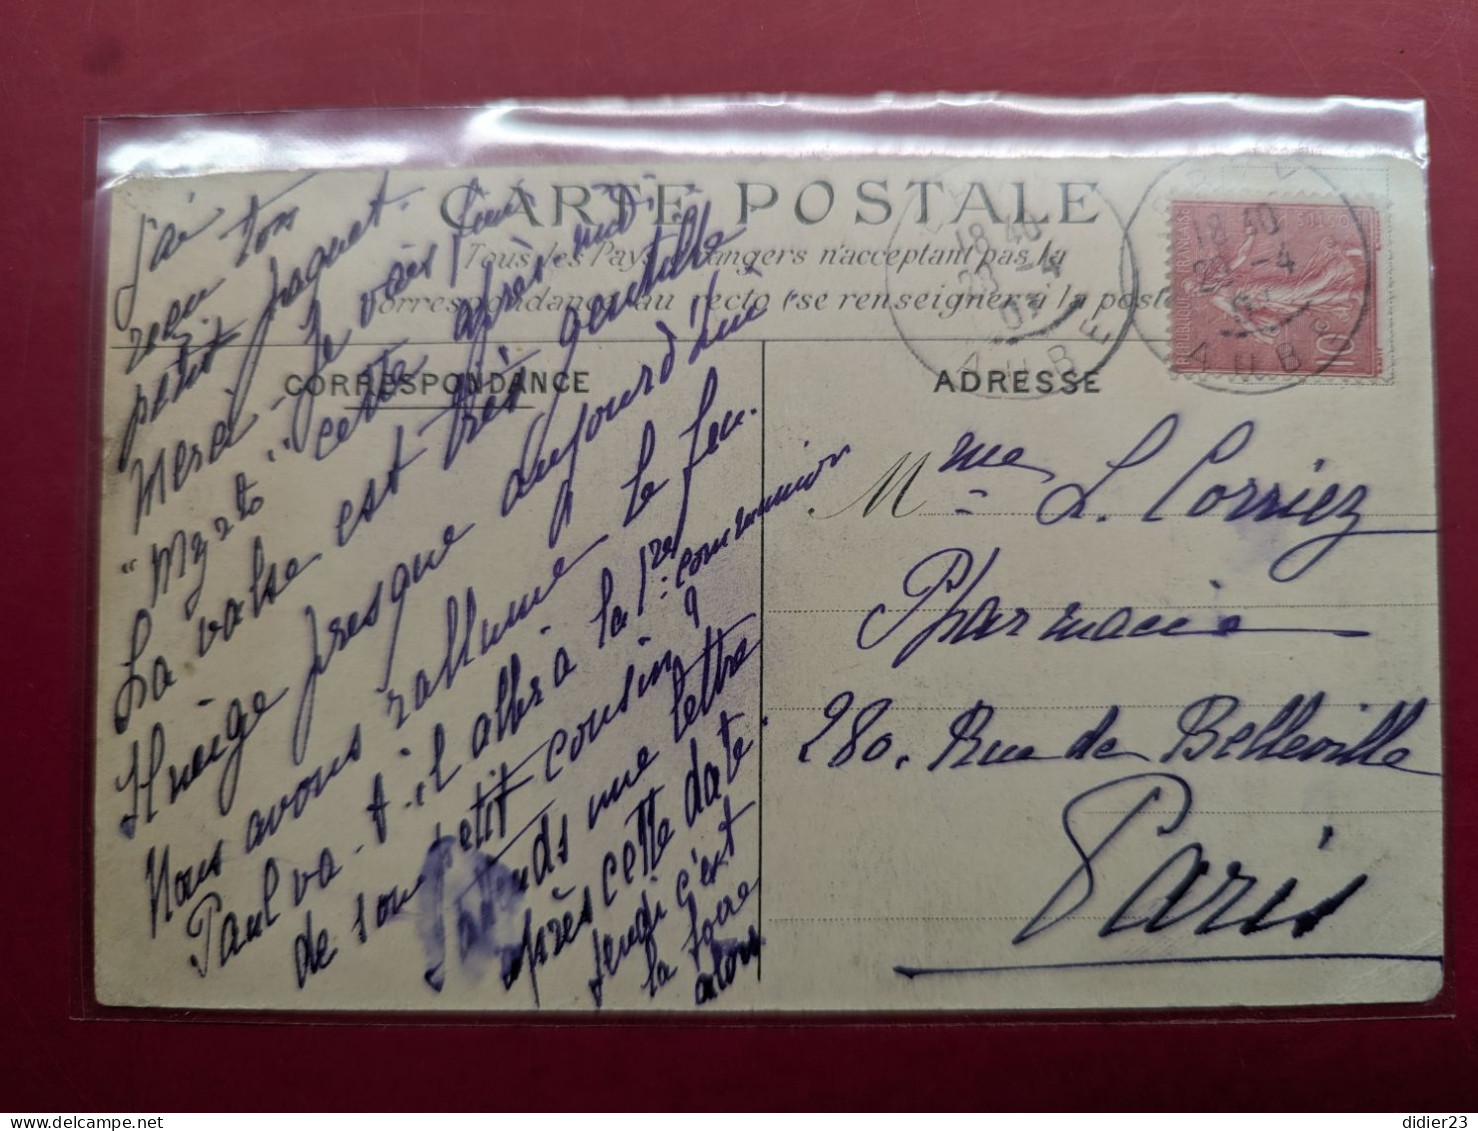 CARTE POSTALE
Tous les Pays étrangers n'acceptant pas la
correspondance au recto (se renseigner à la poste)
CORRESPONDANCE
ADRESSE
J'ai
reçu ton
petit paquet.
Merci - Je vais
"Myrto" cette après midi.
La valse est très gentille
Il neige presque aujourd'hui
Nous avons rallumé le feu.
Paul va-t-il aller à la 1re communion
de son petit cousin ?
J'attends une lettre
après cette date.
jeudi c'est
la foire
alors
Mme L. Corriez
Pharmacie
280. Rue de Belleville
Paris
18 40
20 -4
07
AUBE
18 40
20 -4
07
AUBE
10
didier23